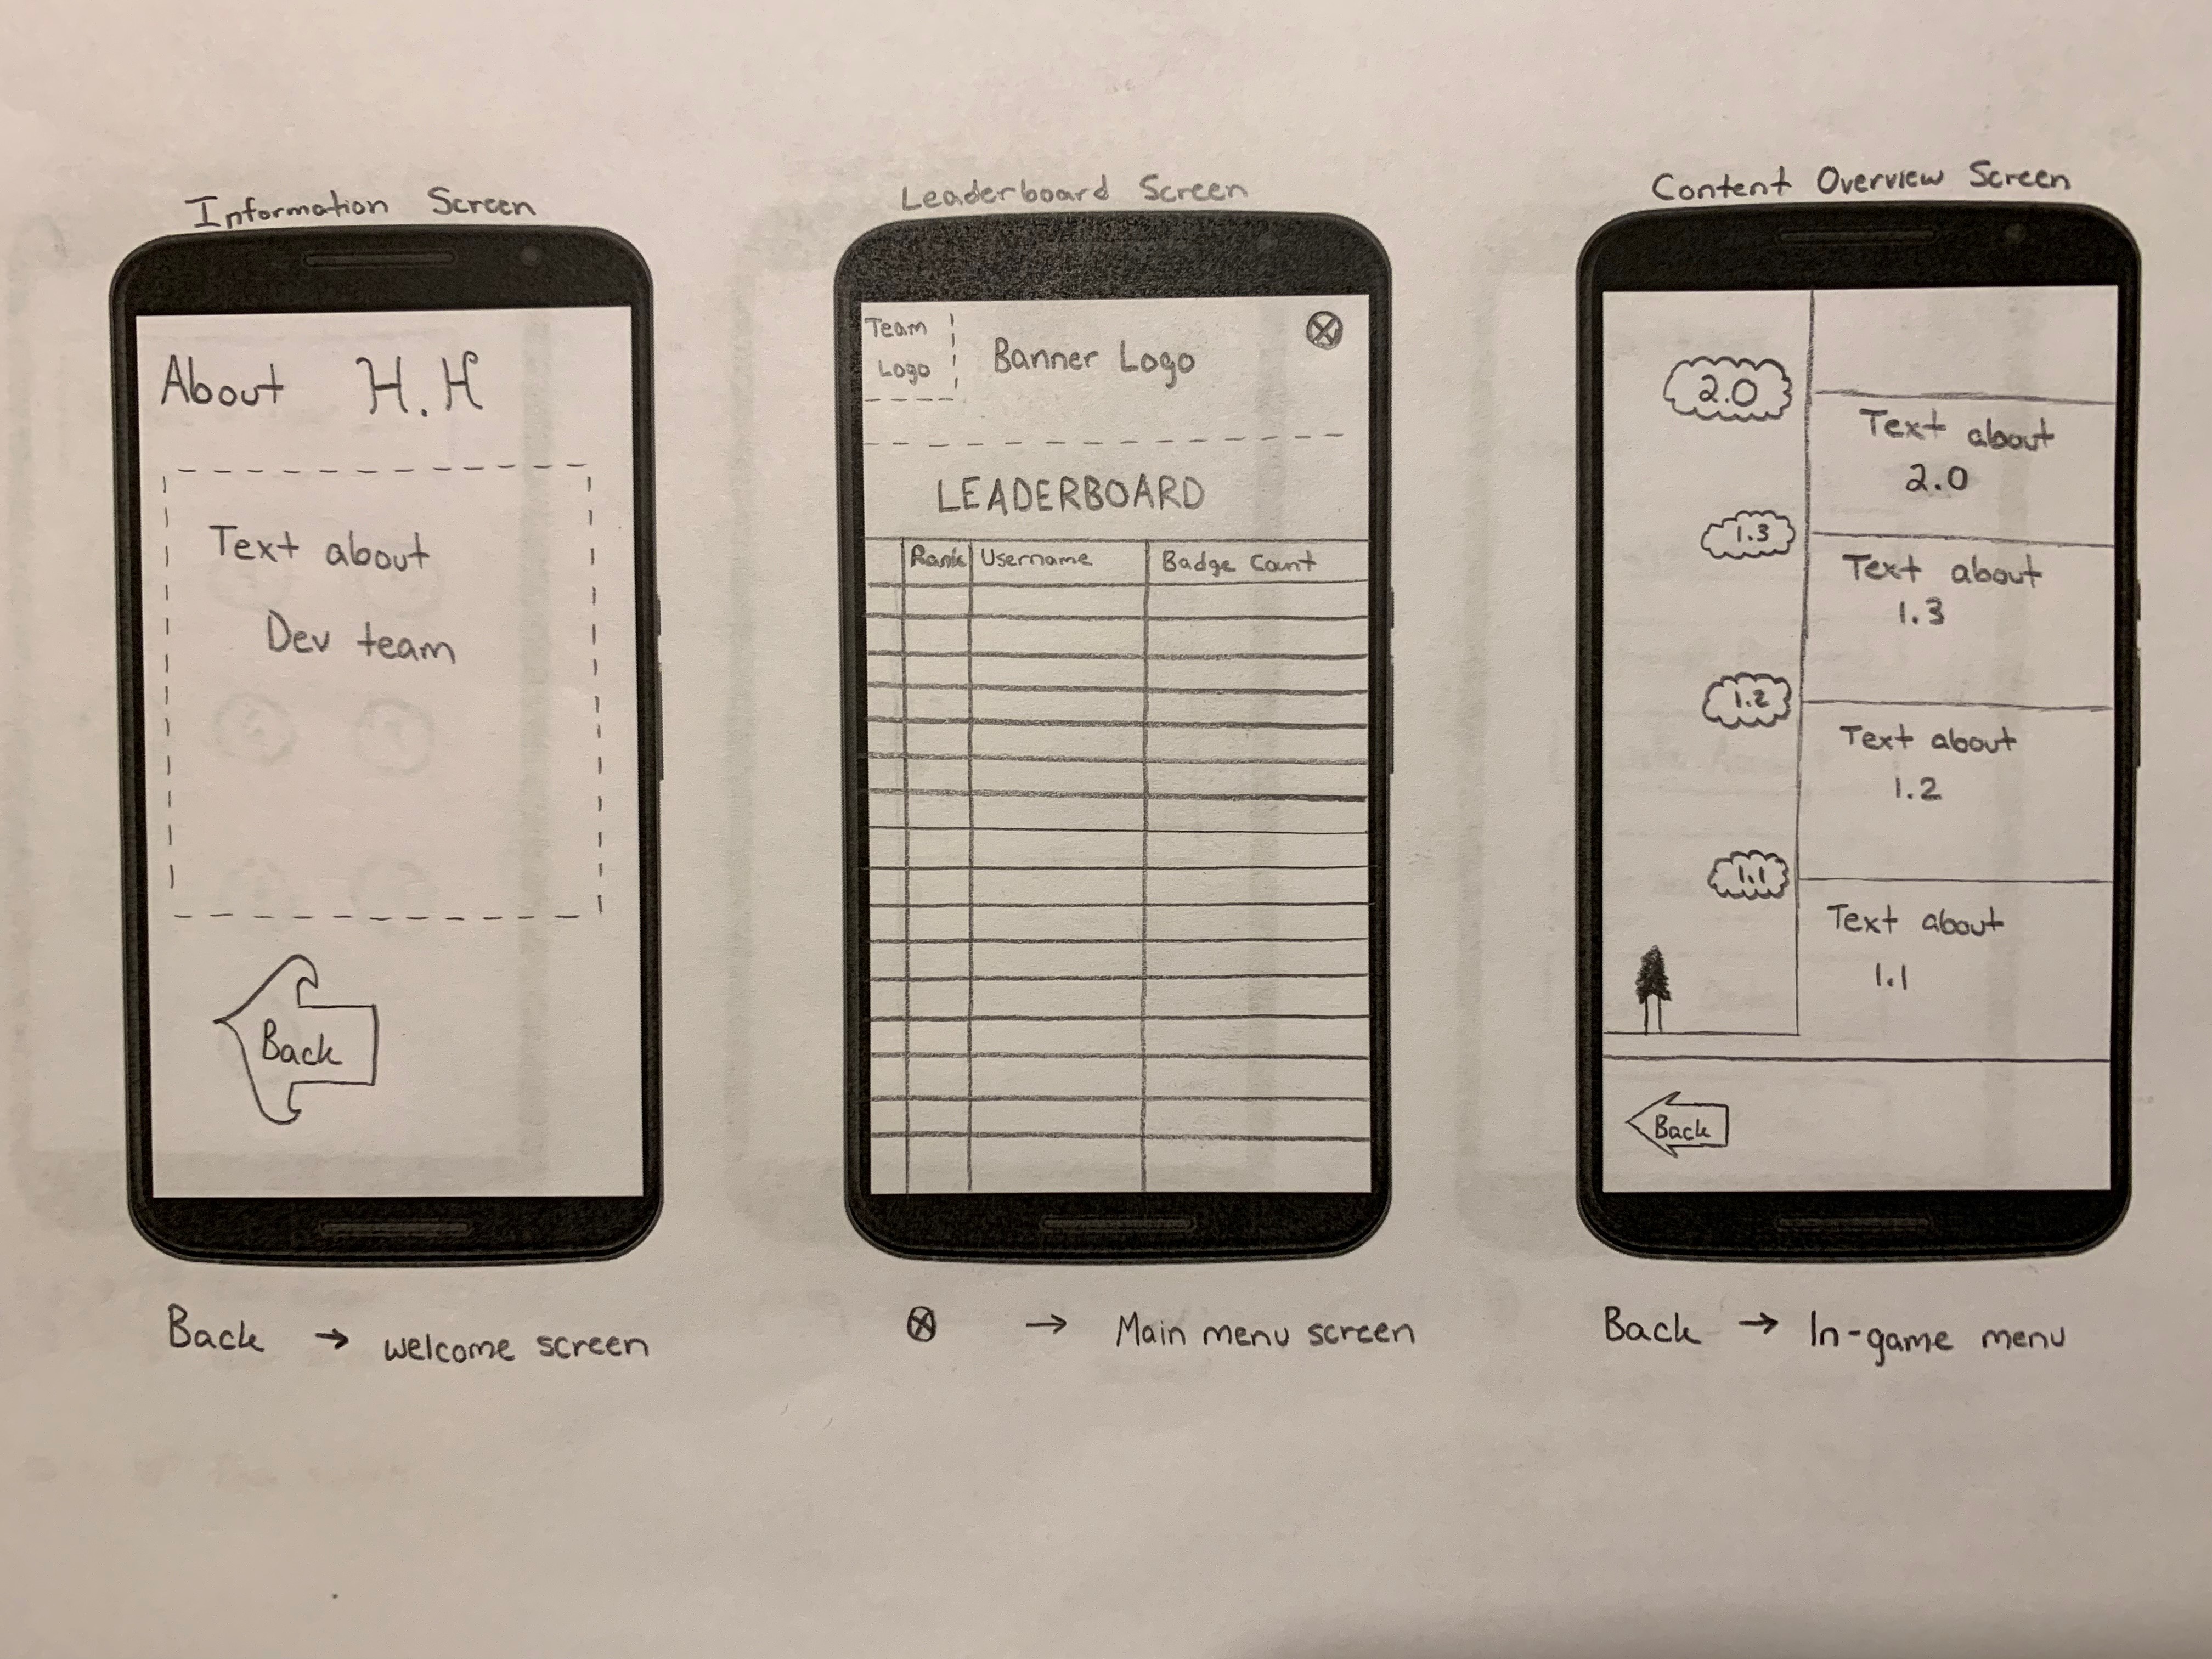 Information Screen
About H.H
Text about
Dev team
Back
Back → welcome screen
Leaderboard Screen
Team
Logo
Banner Logo
LEADERBOARD
Rank Username Badge Count
⊗ → Main menu screen
Content Overview Screen
2.0
Text about
2.0
1.3
Text about
1.3
1.2
Text about
1.2
1.1
Text about
1.1
Back
Back → In-game menu